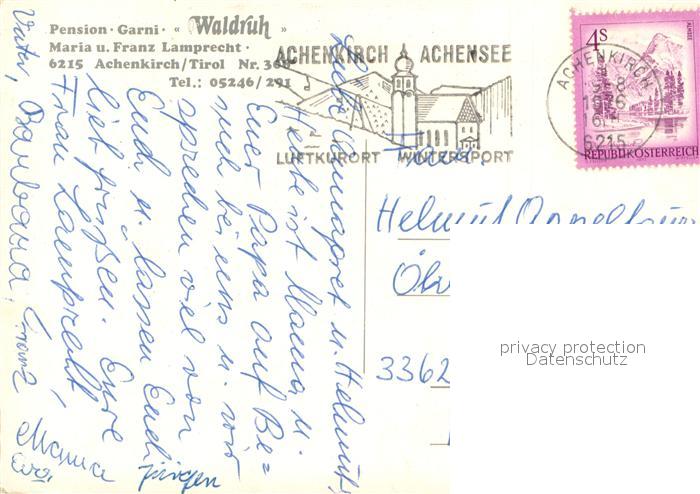 Pension · Garni · « Waldruh »
Maria u. Franz Lamprecht ·
6215 Achenkirch/Tirol Nr. 368
Tel.: 05246/291
ACHENKIRCH ACHENSEE
LUFTKURORT WINTERSPORT
ACHENKIRCH
6215
4S
ALMSEE
REPUBLIK ÖSTERREICH
Liebe Annagret u. Helmut,
Heute ist Mama u.
Euer Papa auf Be=
such bei uns u. wir
sprechen viel von
Euch u. lassen Euch
lieb grüßen. Eure
Frau Lamprecht,
Vater, Barbara, Franz
Mama
Jürgen
Fam.
Helmut
3362
privacy protection
Datenschutz